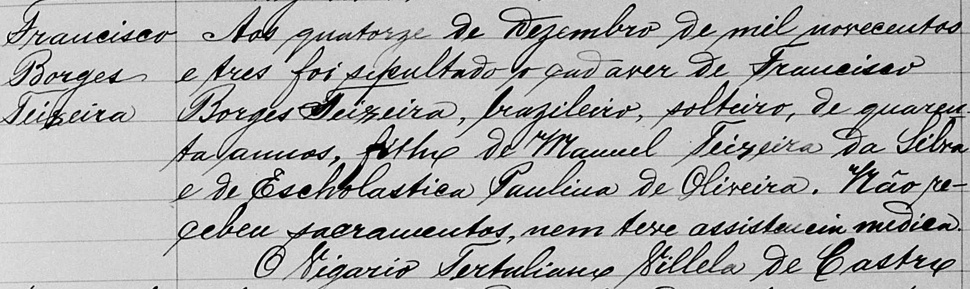 Francisco
Borges
Teixeira
Aos quatorze de Dezembro de mil novecentos
e tres foi sepultado o cadaver de Francisco
Borges Teixeira, brazileiro, solteiro, de quaren-
ta annos, filho de Manuel Teixeira da Silva
e de Escholastica Paulina de Oliveira. Não re-
cebeu sacramentos, nem teve assistencia medica.
O Vigario Tertuliano Villela de Castro